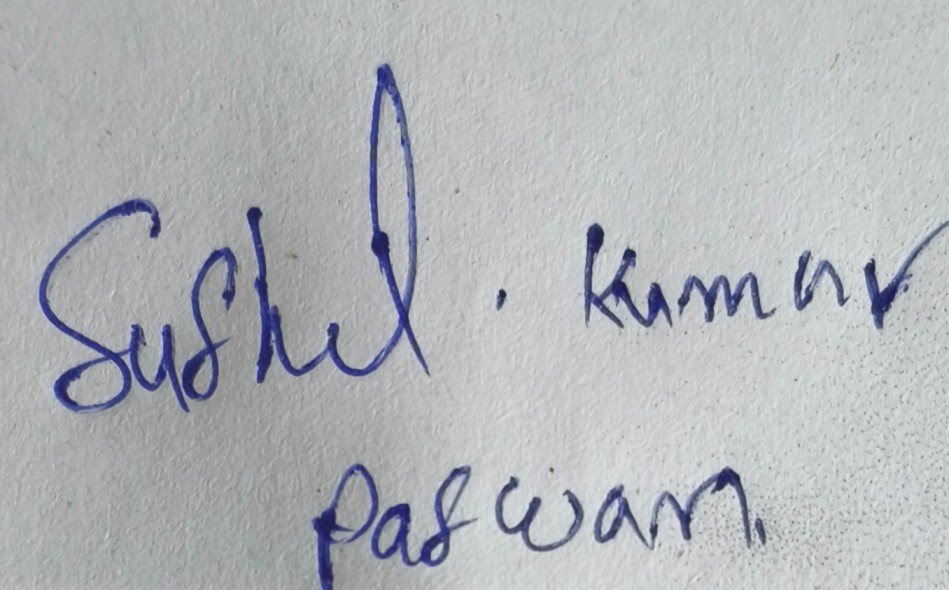 Sushil. Kumar
Paswan.